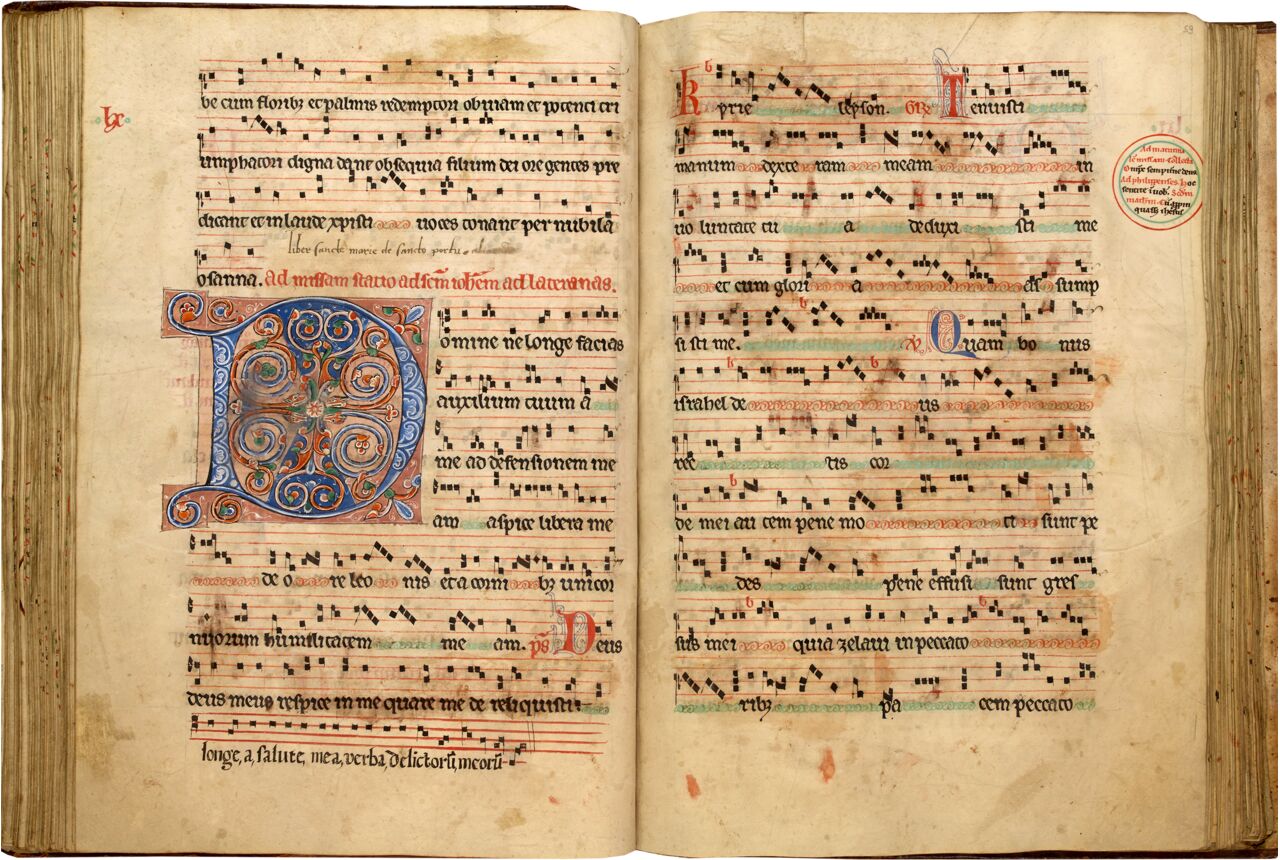 be cum floribz et palmis redemptori obuiam et potenti tri
lx
umphatori digna dant obsequia filium dei ore gentes pre
dicant et in laude xpisti uoces tonant per nubila
liber sancte marie de sancto portu
osanna. ad missam statio ad scm iohem ad lateranas.
Domine ne longe facias
auxilium tuum a
me ad defensionem me
am aspice libera me
de o re leo nis et a corni bz unicor
niorum humilitatem me am. ps Deus
deus meus respice in me quare me de reliquisti
longe, a, salute, mea, verba, delictorū, meorū
Kyrie leyson. Tenuisti
manum dexte ram meam in
uo luntate tu a deduxi sti me
et cum glori a as sump
si sti me. Quam bo nus
israhel de us
rec tis cor
de mei au tem pene mo ti sunt pe
des pene effusi sunt gres
sus mei quia zelaui in peccato
ribz pa cem peccato